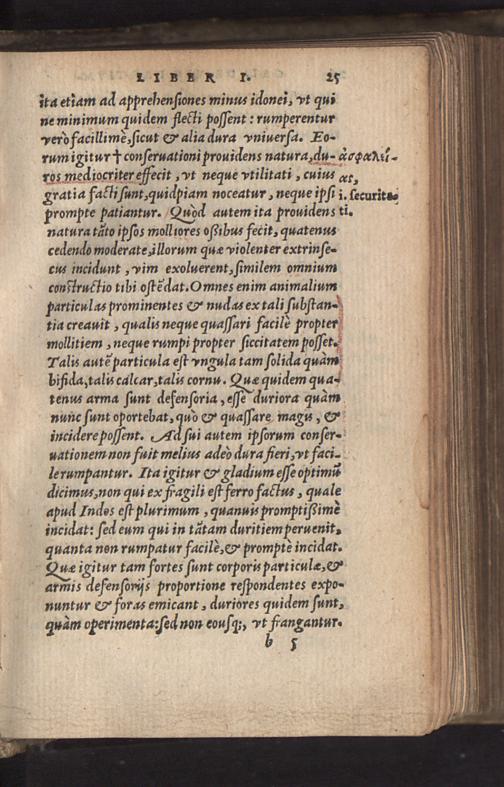 LIBER I. 25
ita etiam ad apprehensiones minus idonei, vt qui
ne minimum quidem flecti possent : rumperentur
verò facillimè, sicut & alia dura vniuersa. Eo-
rum igitur † conseruationi prouidens natura, du- ἀσφαλεί-
ros mediocriter effecit, vt neque vtilitati, cuius ας,
gratia facti sunt, quidpiam noceatur, neque ipsi i. securita-
prompte patiantur. Quòd autem ita prouidens ti.
natura tāto ipsos molliores ossibus fecit, quatenus
cedendo moderate, illorum quæ violenter extrinse-
cus incidunt, vim exoluerent, similem omnium
constructio tibi ostēdat. Omnes enim animalium
particulas prominentes & nudas ex tali substan-
tia creauit, qualis neque quassari facilè propter
mollitiem, neque rumpi propter siccitatem posset.
Talis autē particula est vngula tam solida quàm
bifida, talis calcar, talis cornu. Quæ quidem qua-
tenus arma sunt defensoria, esse duriora quàm
nunc sunt oportebat, quò & quassare magis, &
incidere possent. Ad sui autem ipsorum conser-
uationem non fuit melius adeò dura fieri, vt faci-
le rumpantur. Ita igitur & gladium esse optimū
dicimus, non qui ex fragili est ferro factus, quale
apud Indos est plurimum, quanuis promptissimè
incidat: sed eum qui in tātam duritiem peruenit,
quanta non rumpatur facilè, & promptè incidat.
Quæ igitur tam fortes sunt corporis particulæ, &
armis defensorijs proportione respondentes expo-
nuntur & foras emicant, duriores quidem sunt,
quàm operimenta: sed non eousq;, vt frangantur.
b 5